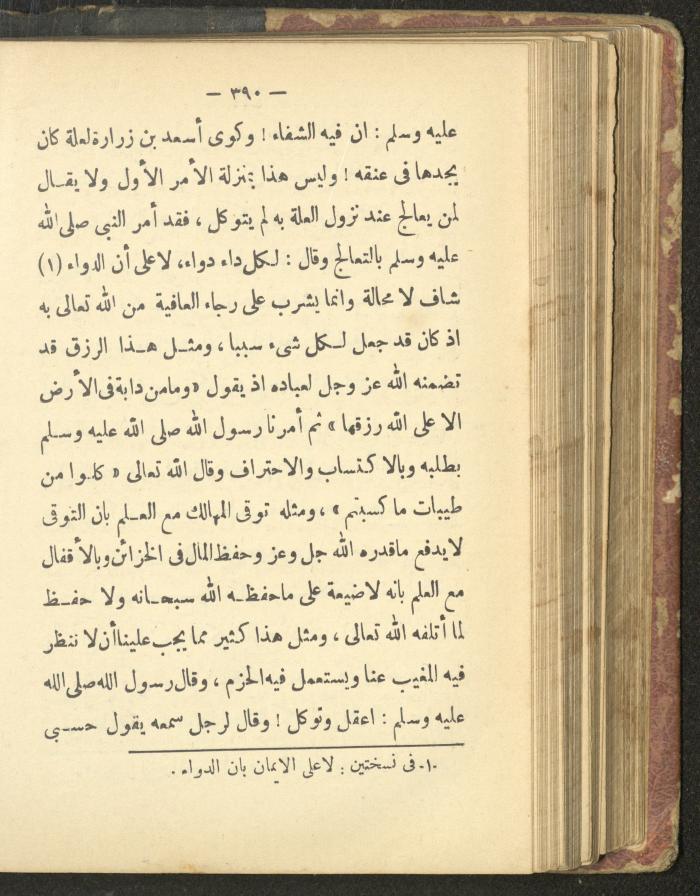 — ٣٩٠ —
عليه وسلم : ان فيه الشفاء ! وكوى أسعد بن زرارة لعلة كان
يجدها فى عنقه ! وليس هذا بمنزلة الأمر الأول ولا يقال
لمن يعالج عند نزول العلة به لم يتوكل ، فقد أمر النبى صلى الله
عليه وسلم بالتعالج وقال : لكل داء دواء، لا على أن الدواء (١)
شاف لا محالة وانما يشرب على رجاء العافية من الله تعالى به
اذ كان قد جعل لكل شىء سببا ، ومثل هذا الرزق قد
تضمنه الله عز وجل لعباده اذ يقول « وما من دابة فى الأرض
الا على الله رزقها » ثم أمرنا رسول الله صلى الله عليه وسلم
بطلبه وبالاكتساب والاحتراف وقال الله تعالى « كلوا من
طيبات ما كسبتم » ، ومثله توقى المهالك مع العلم بان التوقى
لا يدفع ما قدره الله جل وعز وحفظ المال فى الخزائن وبالأقفال
مع العلم بانه لا ضيعة على ما حفظه الله سبحانه ولا حفظ
لما أتلفه الله تعالى ، ومثل هذا كثير مما يجب علينا أن لا ننظر
فيه المغيب عنا ويستعمل فيه الحزم ، وقال رسول الله صلى الله
عليه وسلم : اعقل وتوكل ! وقال لرجل سمعه يقول حسبى
-١- فى نسختين : لا على الايمان بان الدواء .